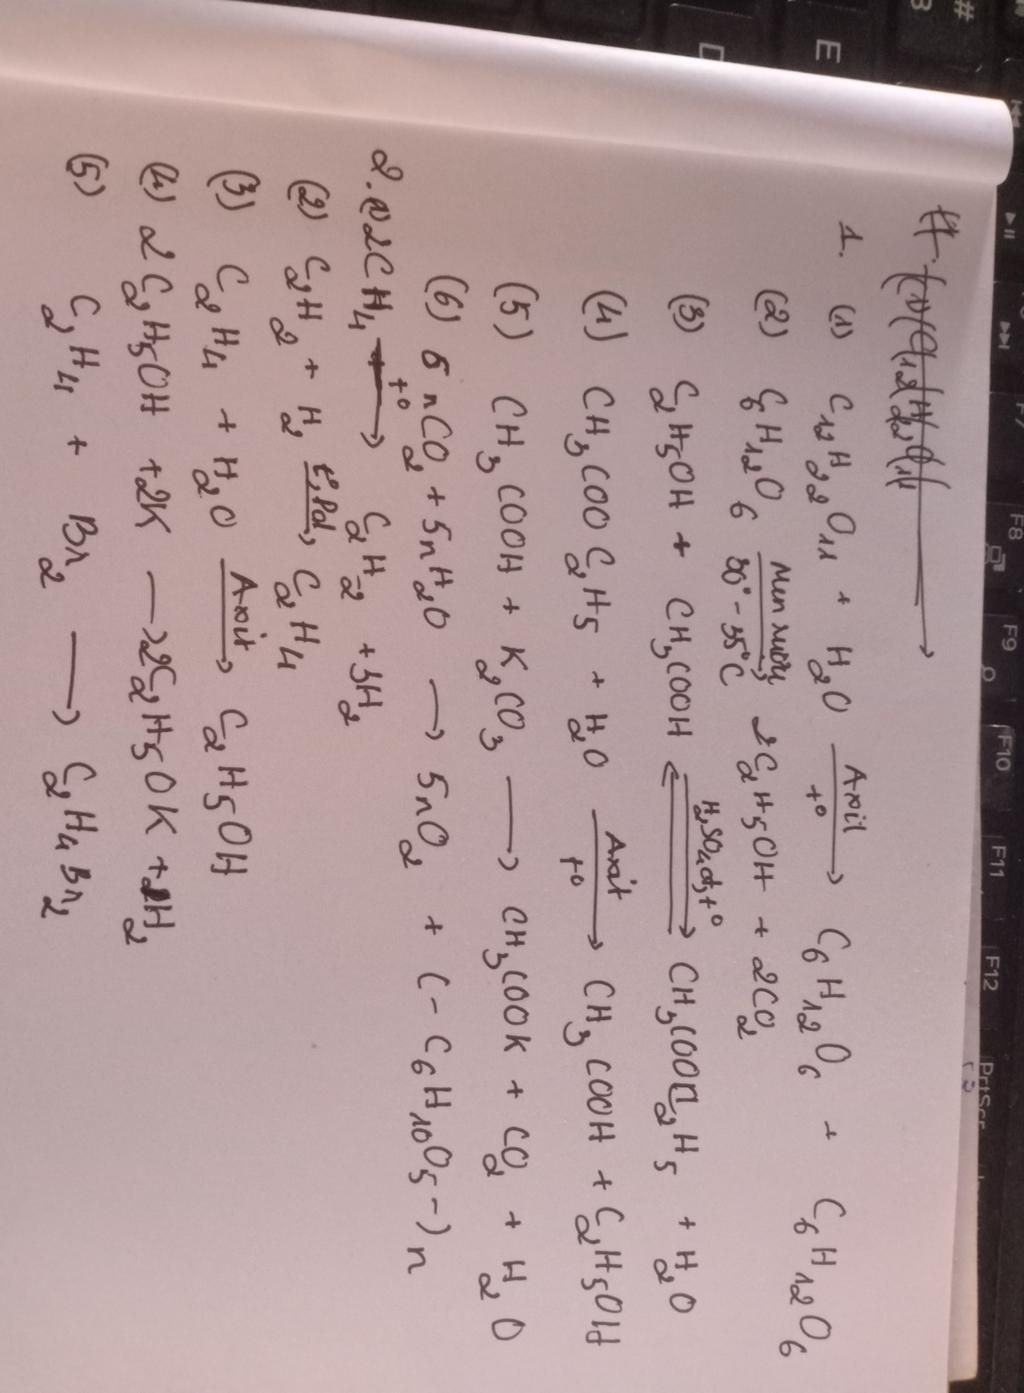 # E D
F7 F8 F9 F10 F11 F12 PrtScr
1. (1) C12H22O11 + H2O Axit t° → C6H12O6 + C6H12O6
(2) C6H12O6 Men rượu 30° - 35°C → 2C2H5OH + 2CO2
(3) C2H5OH + CH3COOH H2SO4đ, t° ⇌ CH3COOC2H5 + H2O
(4) CH3COOC2H5 + H2O Axit t° → CH3COOH + C2H5OH
(5) CH3COOH + K2CO3 → CH3COOK + CO2 + H2O
(6) 6nCO2 + 5nH2O → 5nO2 + (-C6H10O5-)n
2. 2CH4 t° → C2H2 + 3H2
(2) C2H2 + H2 t°, Pd → C2H4
(3) C2H4 + H2O Axit → C2H5OH
(4) 2C2H5OH + 2K → 2C2H5OK + H2
(5) C2H4 + Br2 → C2H4Br2